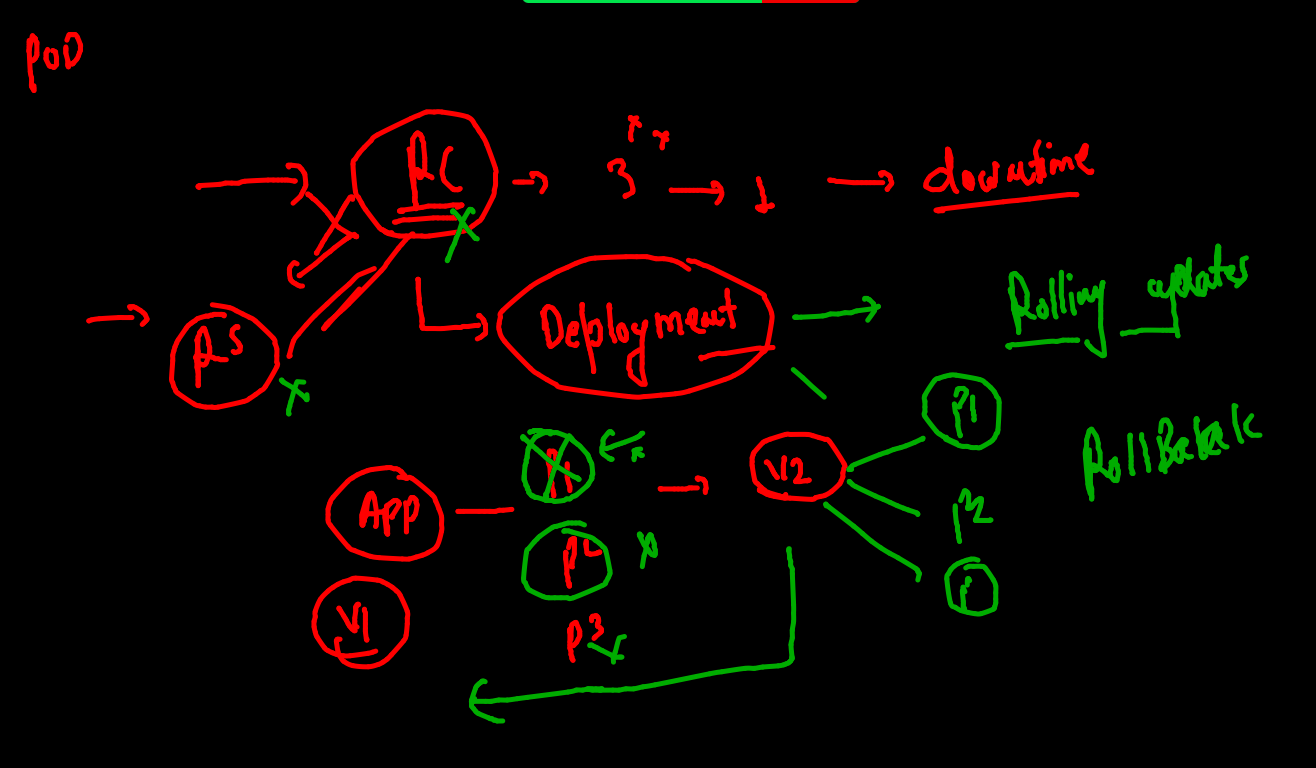 POD
RC
3
1
downtime
RS
Deployment
Rolling updates
P1
RollBack
App
P1
V2
P2
P2
V1
P3
P